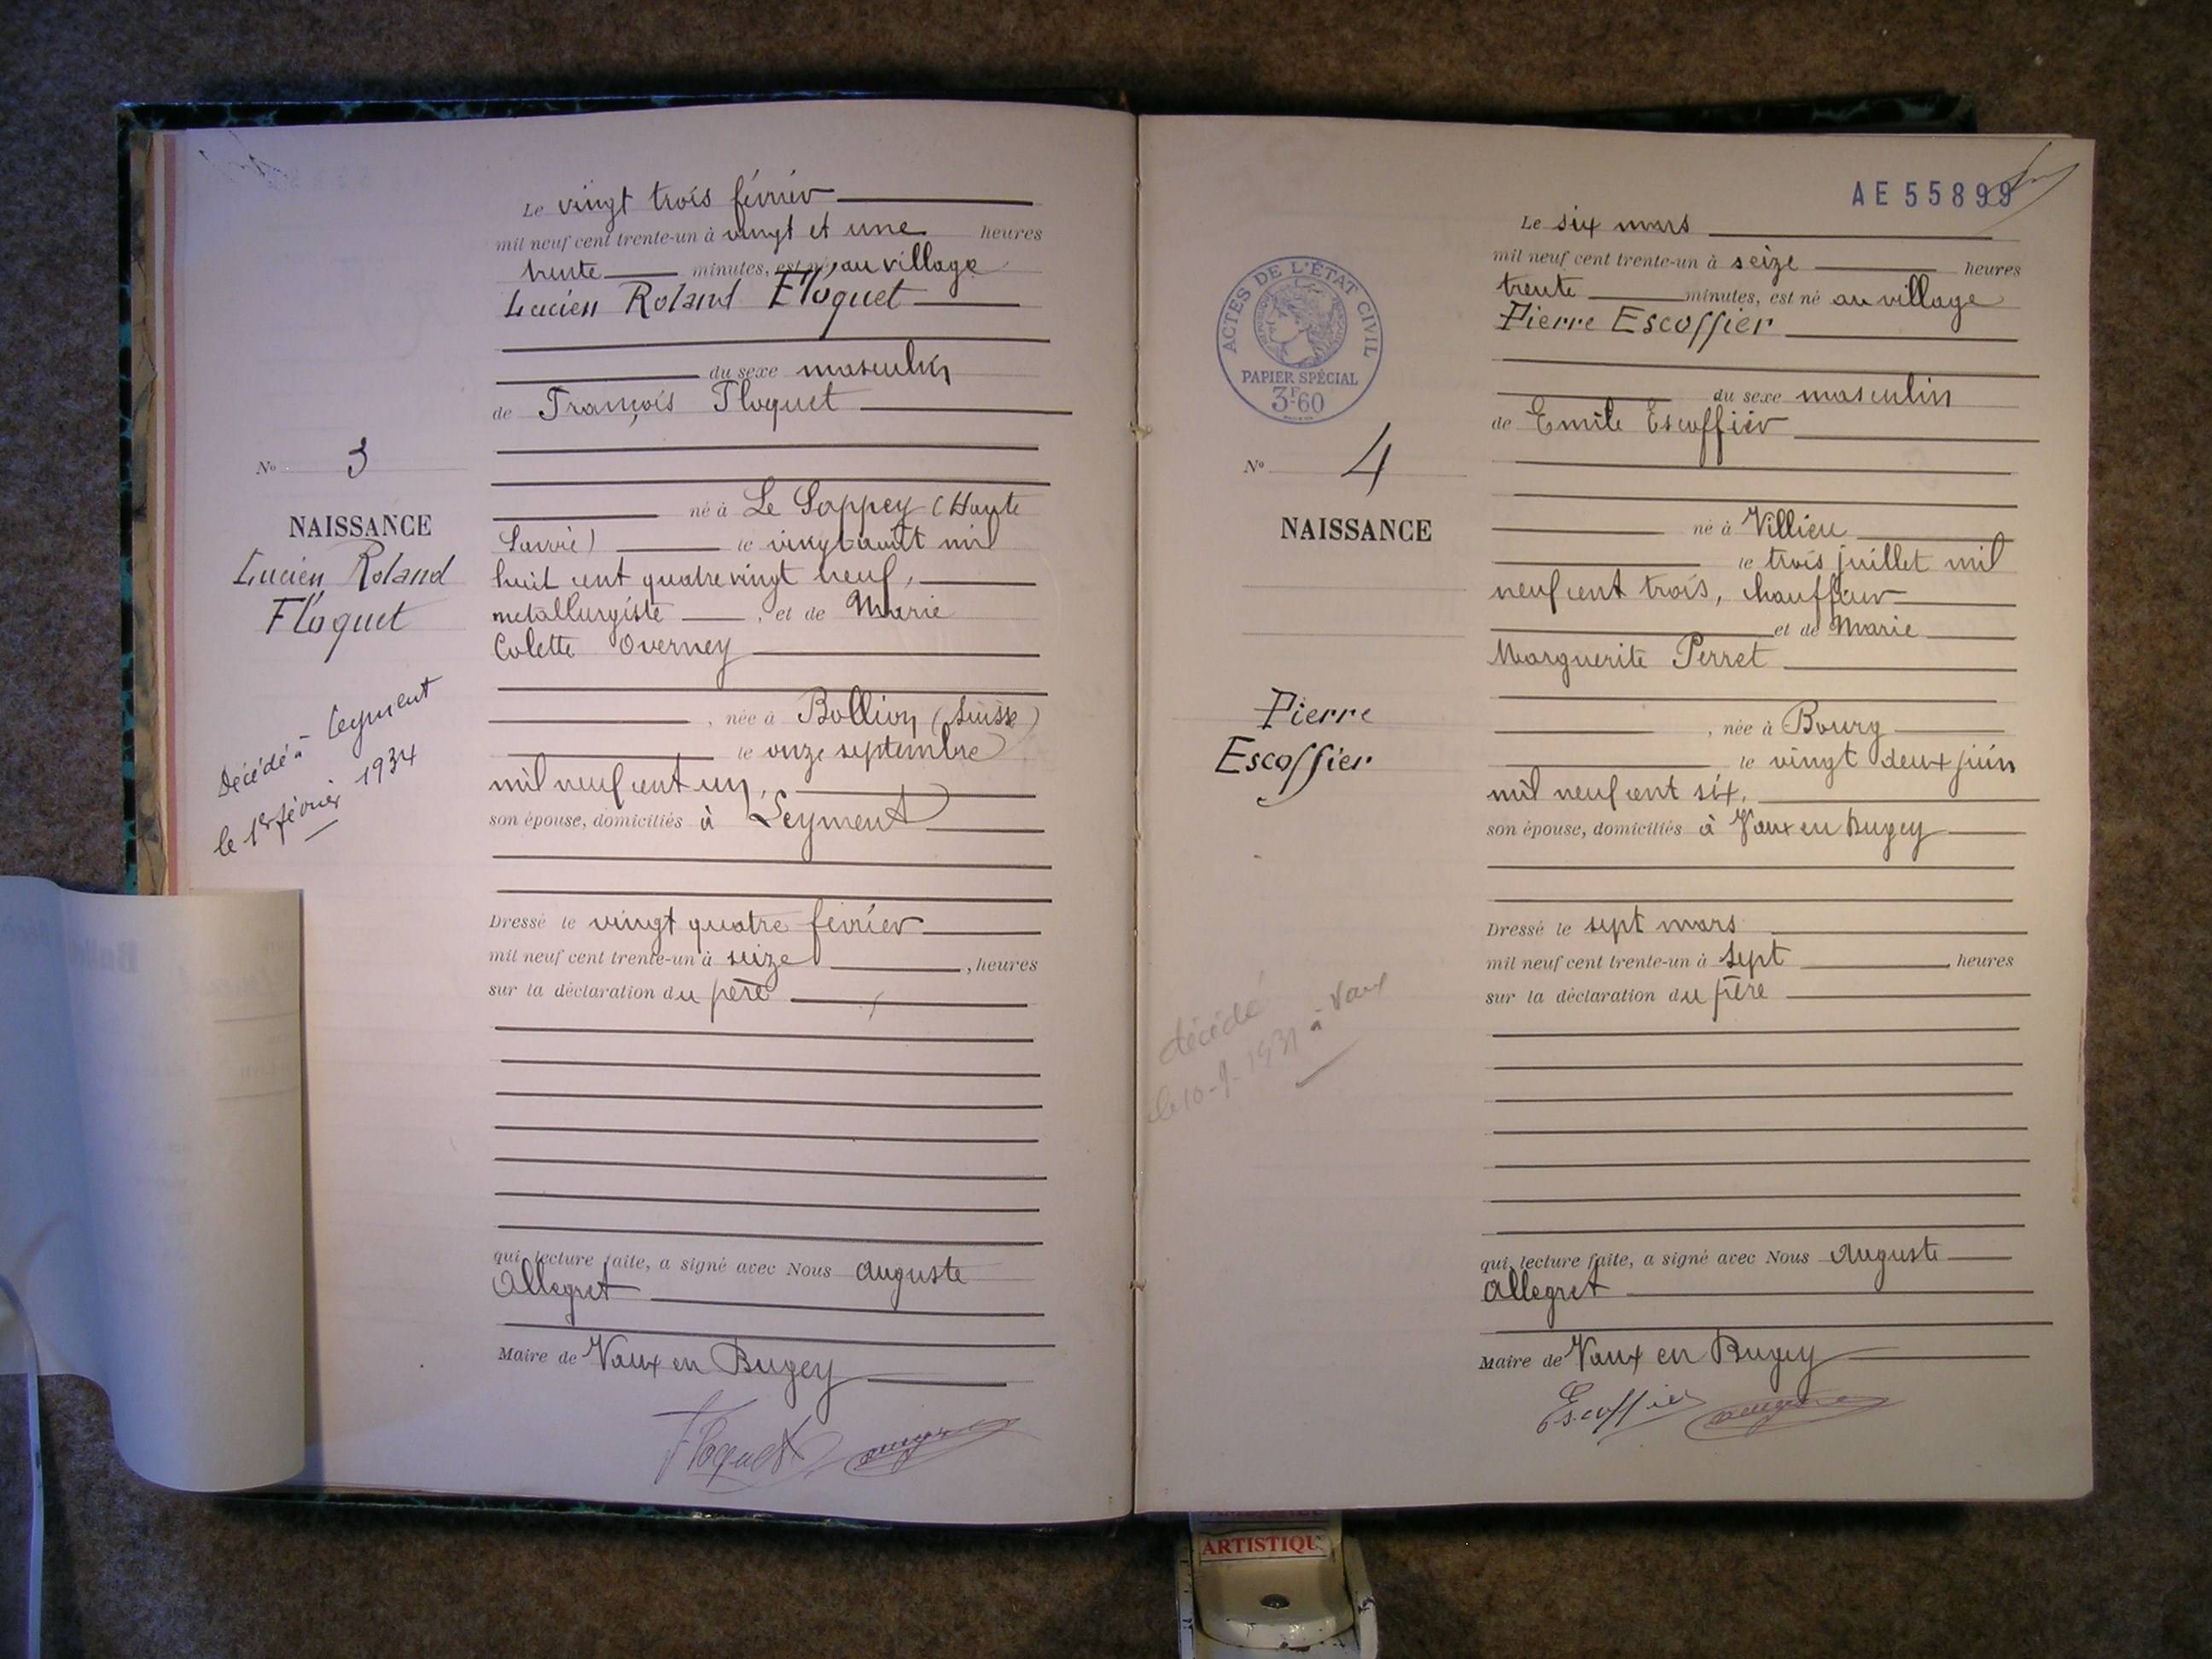 Le vingt trois février
mil neuf cent trente-un à vingt et une heures
trente minutes, est né, au village
Lucien Roland Floquet
du sexe masculin
de François Floquet
né à Le Sappey (Haute
Savoie) le vingt août mil
huit cent quatre vingt neuf,
metallurgiste, et de Marie
Colette Overney
, née à Bollion (Suisse)
le onze septembre
mil neuf cent un,
son épouse, domiciliés à Leyment
Dressé le vingt quatre février
mil neuf cent trente-un à seize, heures
sur la déclaration du père
qui, lecture faite, a signé avec Nous Auguste
Allegret
Maire de Vaux en Bugey
Floquet
No 3
NAISSANCE
Lucien Roland
Floquet
Décédé à Leyment
le 1er février 1934
AE 55899
Le six mars
mil neuf cent trente-un à seize heures
trente minutes, est né au village
Pierre Escoffier
du sexe masculin
de Emile Escoffier
né à Villieu
le trois juillet mil
neuf cent trois, chauffeur
et de Marie
Marguerite Perret
, née à Bourg
le vingt deux juin
mil neuf cent six,
son épouse, domiciliés à Vaux en Bugey
Dressé le sept mars
mil neuf cent trente-un à sept heures
sur la déclaration du père
qui, lecture faite, a signé avec Nous Auguste
Allegret
Maire de Vaux en Bugey
Escoffier
ACTES DE L'ÉTAT CIVIL
PAPIER SPÉCIAL
3F60
No 4
NAISSANCE
Pierre
Escoffier
décédé
le 10-9-1931 à Vaux
ARTISTIQU